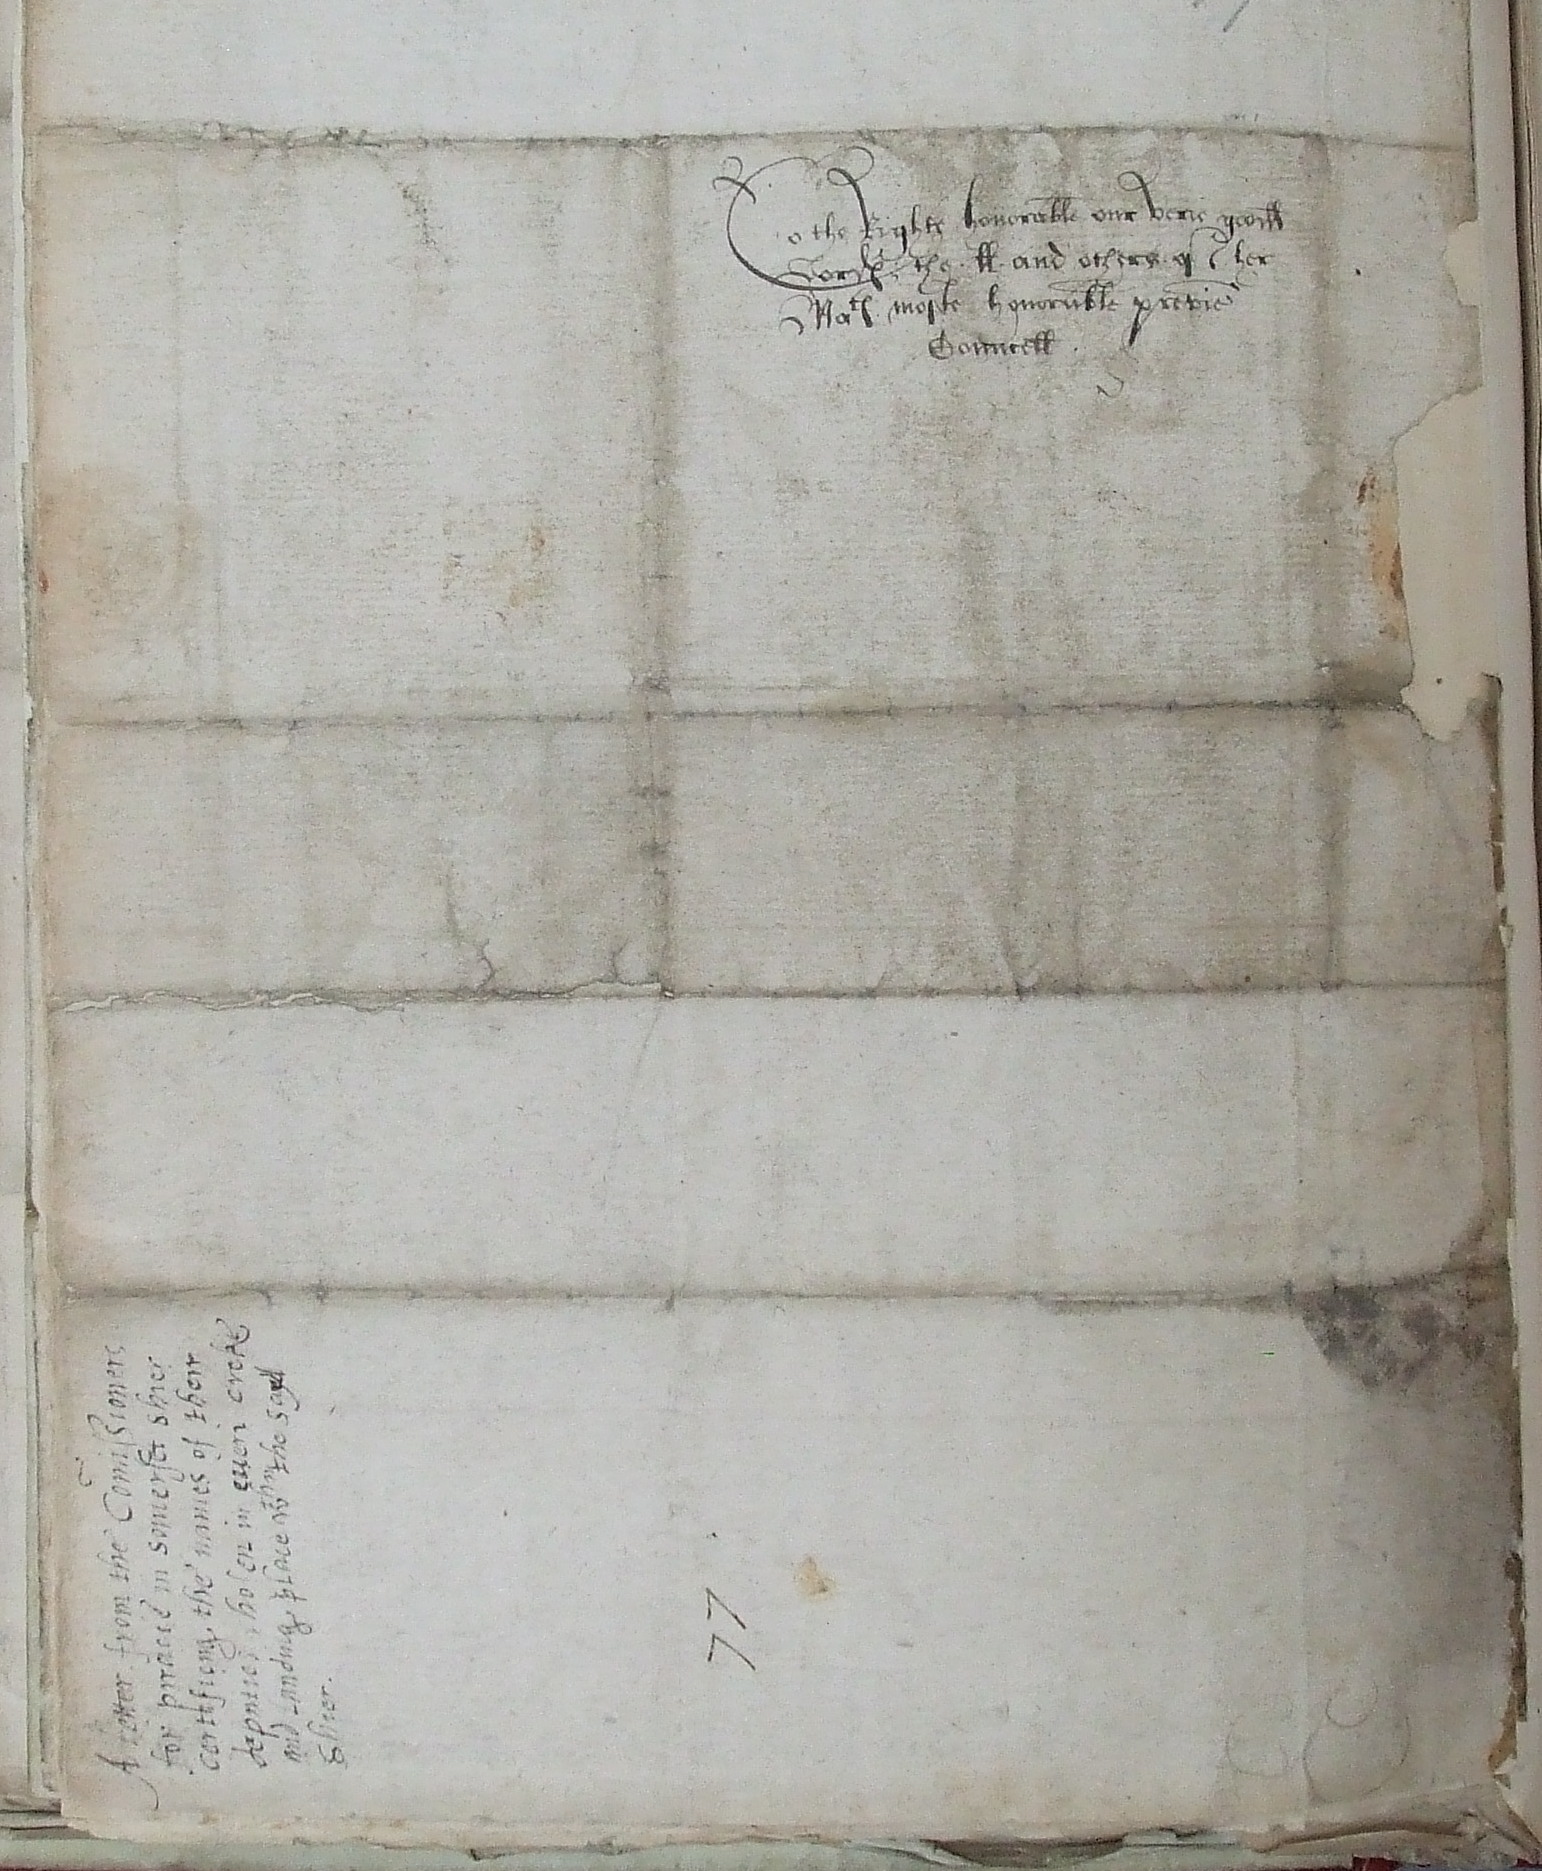 To the Righte honorable our verie good
Lords the ll and others of her
Mats moste honorable previe
Councell .
A letter from the Comissioners
for piracie in somerset shier
certifieng the names of their
deputies chosen in euery creke
and landing place wthin the sayd
Shier.
77